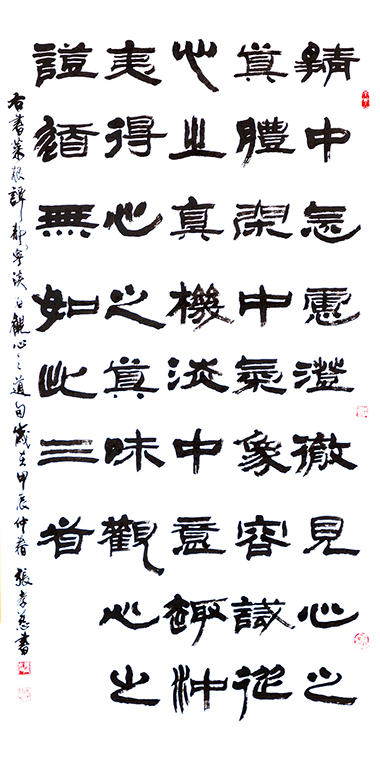 靜中念慮澄徹見心之
真體閑中氣象容識從
心之真機淡中意趣沖
夷得心之真味觀心之
證道無如此三者
右書菜根譚靜寧淡白觀心之道句歲在甲辰仲春張孝慈書